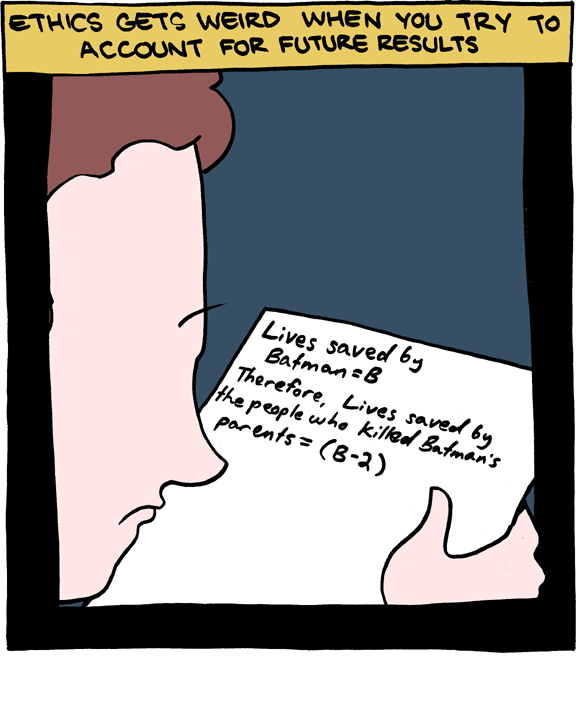 ETHICS GETS WEIRD WHEN YOU TRY TO
ACCOUNT FOR FUTURE RESULTS
Lives saved by
Batman = B
Therefore, Lives saved by
the people who killed Batman's
parents = (B-2)